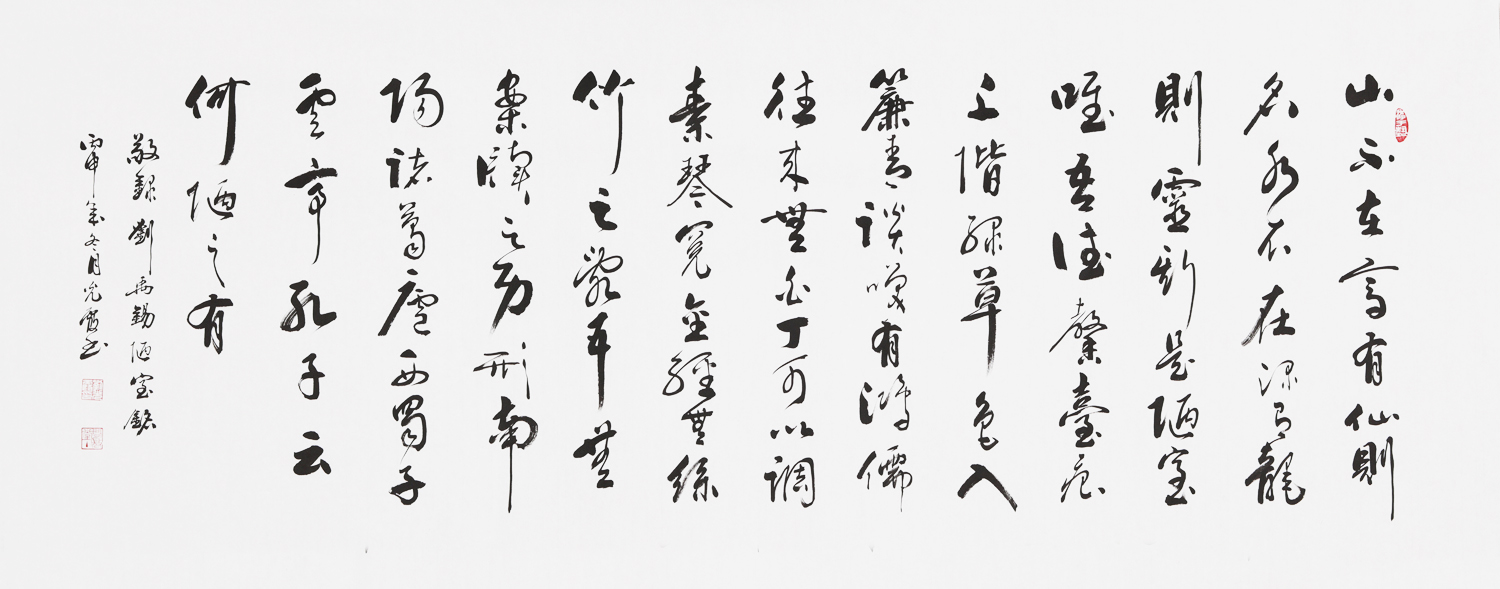 山不在高有仙則
名水不在深有龍
則靈斯是陋室
唯吾德馨臺痕
上階綠草色入
簾青談咲有鴻儒
往來無白丁可以調
素琴閱金經無絲
竹之亂耳無
案牘之勞形南
陽諸葛廬西蜀子
雲亭孔子云
何陋之有
敬錄劉禹錫陋室銘
丙申歲冬月光霞书